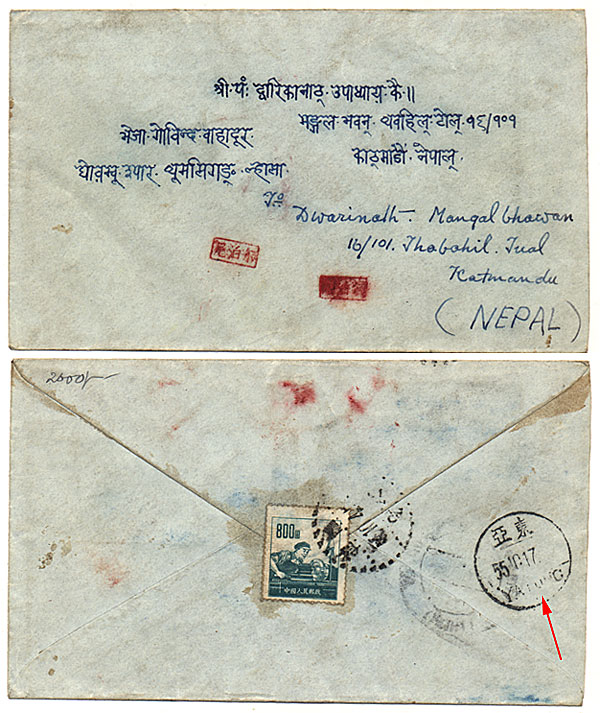 श्री पं. द्वारिकानाथ् उपाध्याय कै॥
मङ्गल भवन् थवहिल् टोल् १६/१०१
काठ्माडौं नेपाल्
भेजा गोविन्द बाहादूर्
उपार् ल्हासा
To
Dwarinath. Mangal bhawan
16/101. Thabahil. Tual
Katmandu
(NEPAL)
尼泊尔
800圆
中国人民邮政
亞東
55.10.17
YATUNG